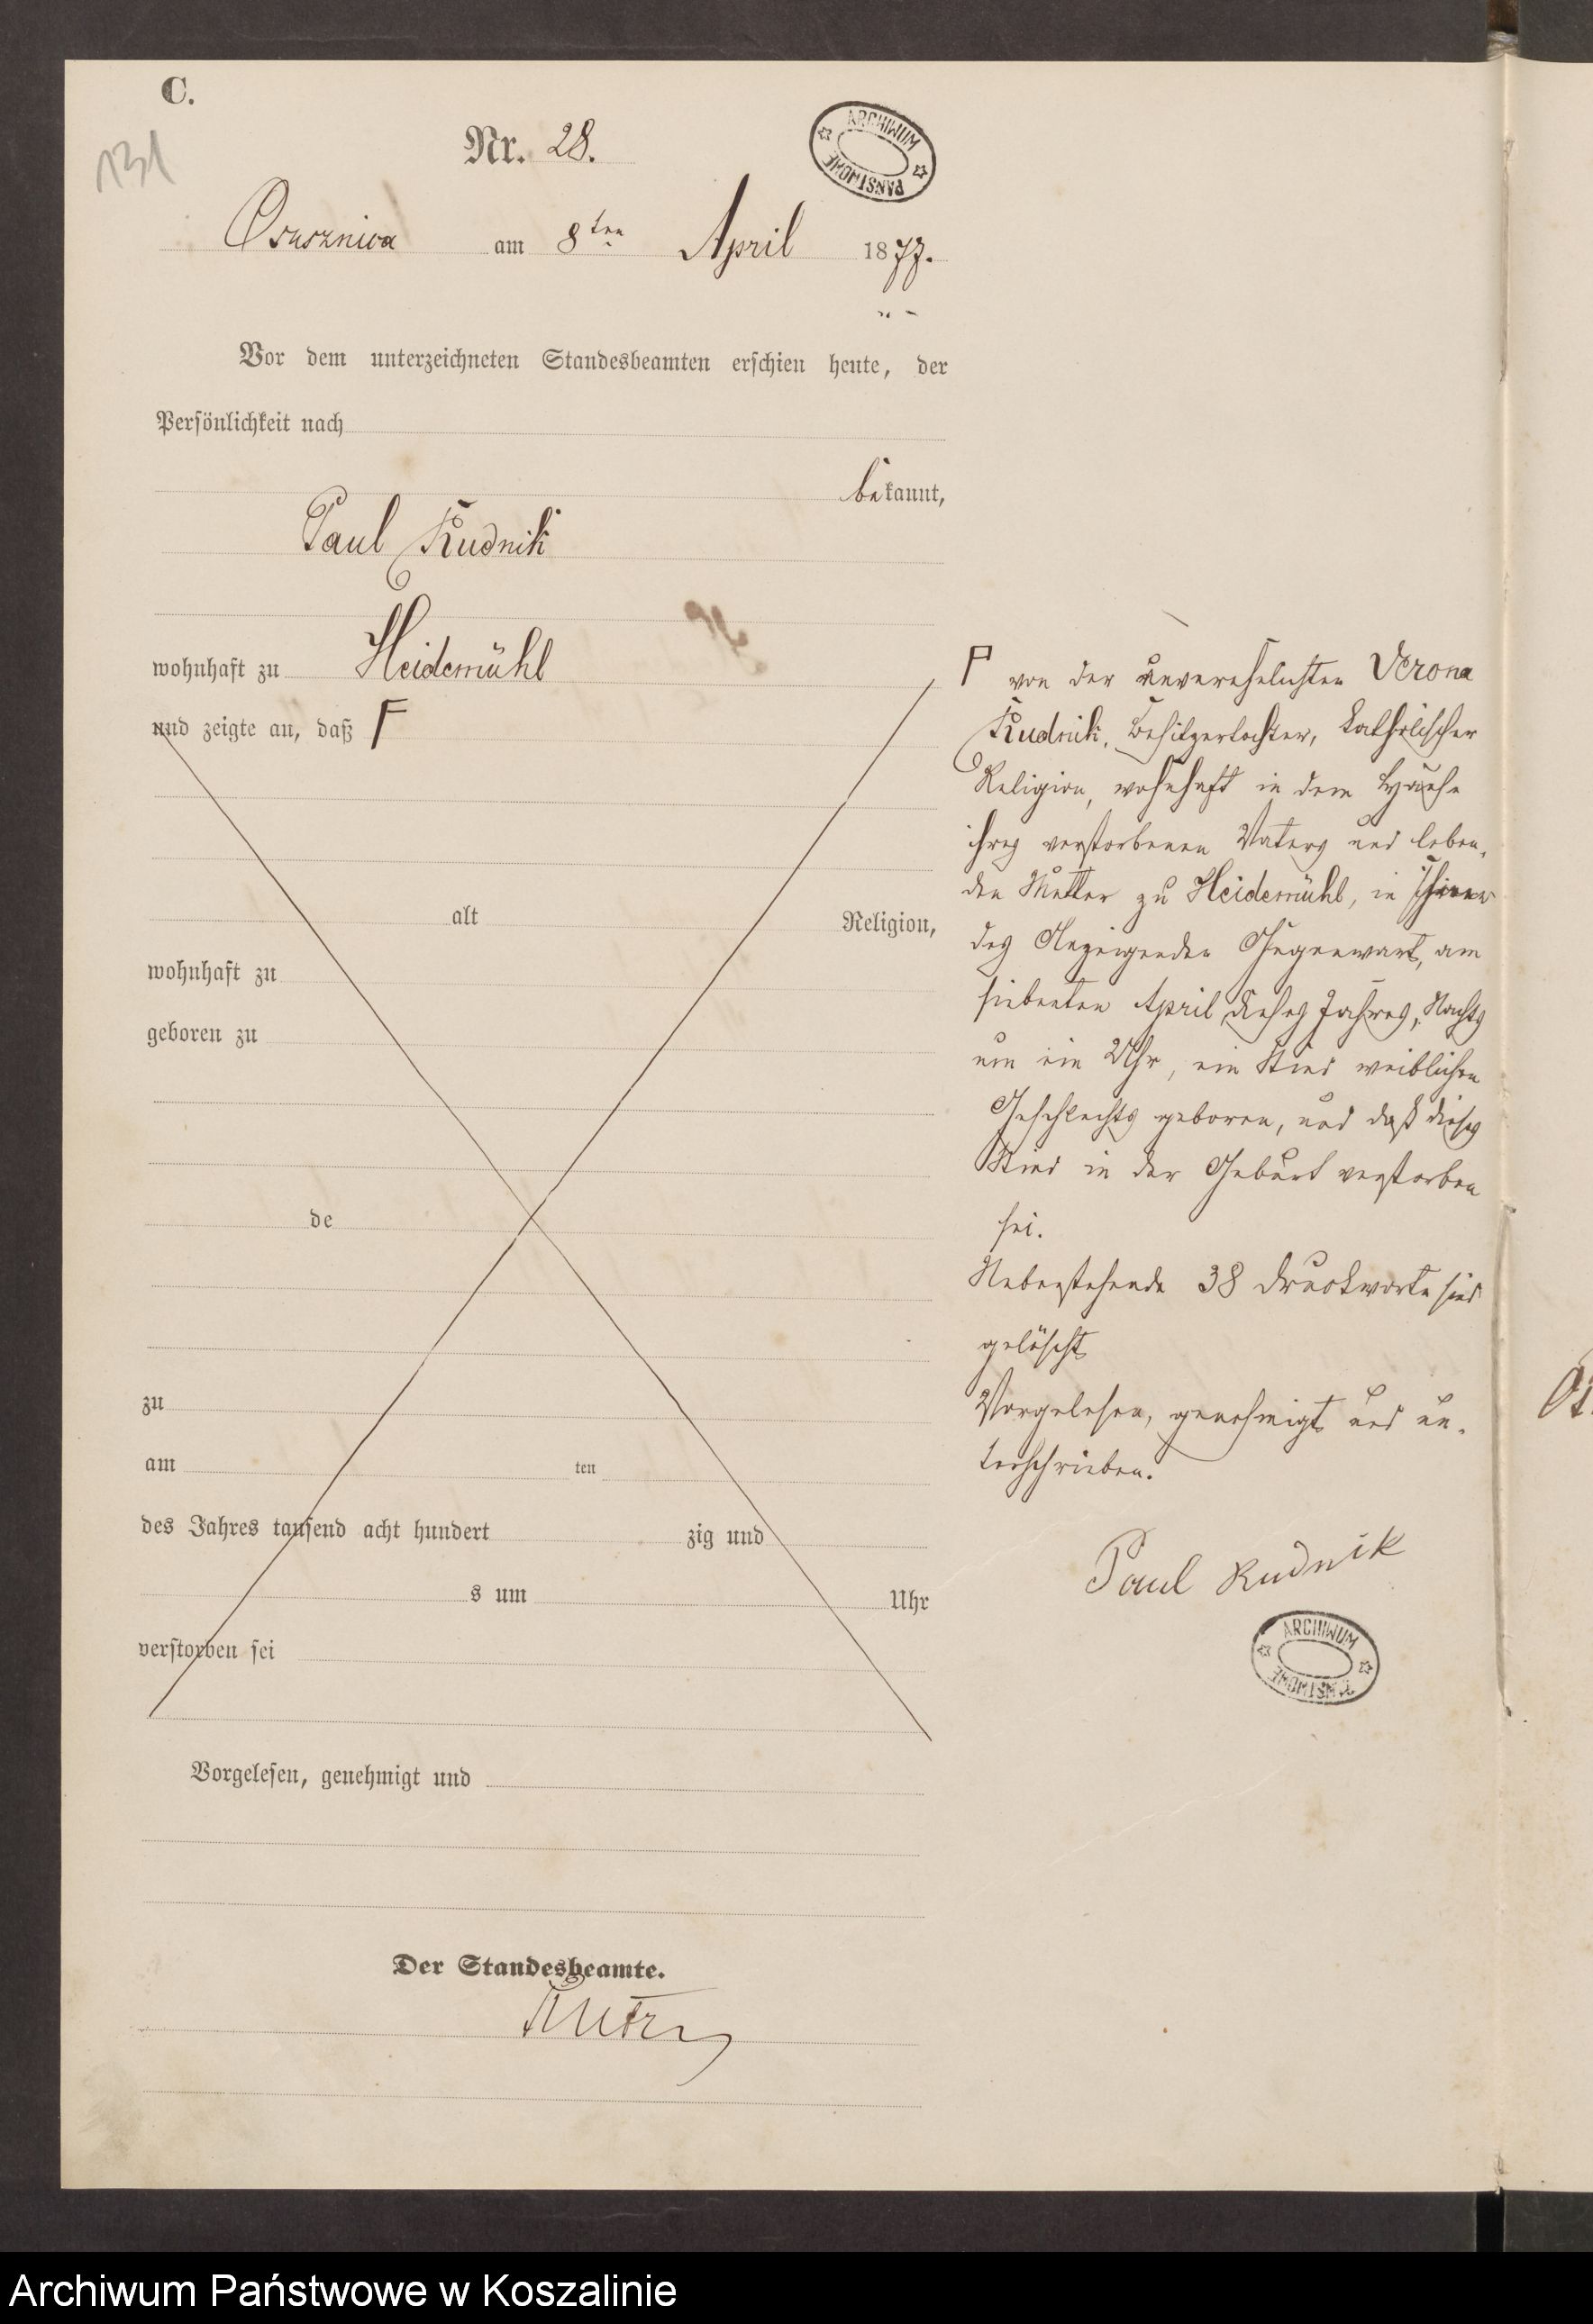 C.
131
Nr. 28.
ARCHIWUM PAŃSTWOWE
Osusznica am 8ten April 1877.
Vor dem unterzeichneten Standesbeamten erschien heute, der
Persönlichkeit nach
bekannt,
Paul Rudnik
wohnhaft zu Heidemühl
und zeigte an, daß F
alt Religion,
wohnhaft zu
geboren zu
de
zu
am ten
des Jahres tausend acht hundert zig und
s um Uhr
verstorben sei
Vorgelesen, genehmigt und
Der Standesbeamte.
F von der unverehelichten Verona
Rudnik, Besitzertochter, katholischer
Religion, wohnhaft in dem Hause
ihres verstorbenen Vaters und leben-
den Mutter zu Heidemühl, in
des Anzeigenden Gegenwart, am
siebenten April dieses Jahres, Nachts
um ein Uhr, ein Kind weiblichen
Geschlechts geboren, und daß dieses
Kind in der Geburt verstorben
sei.
Nebenstehende 38 Druckworte sind
gelöscht
Vorgelesen, genehmigt und un-
terschrieben.
Paul Rudnik
ARCHIWUM PAŃSTWOWE
Archiwum Państwowe w Koszalinie